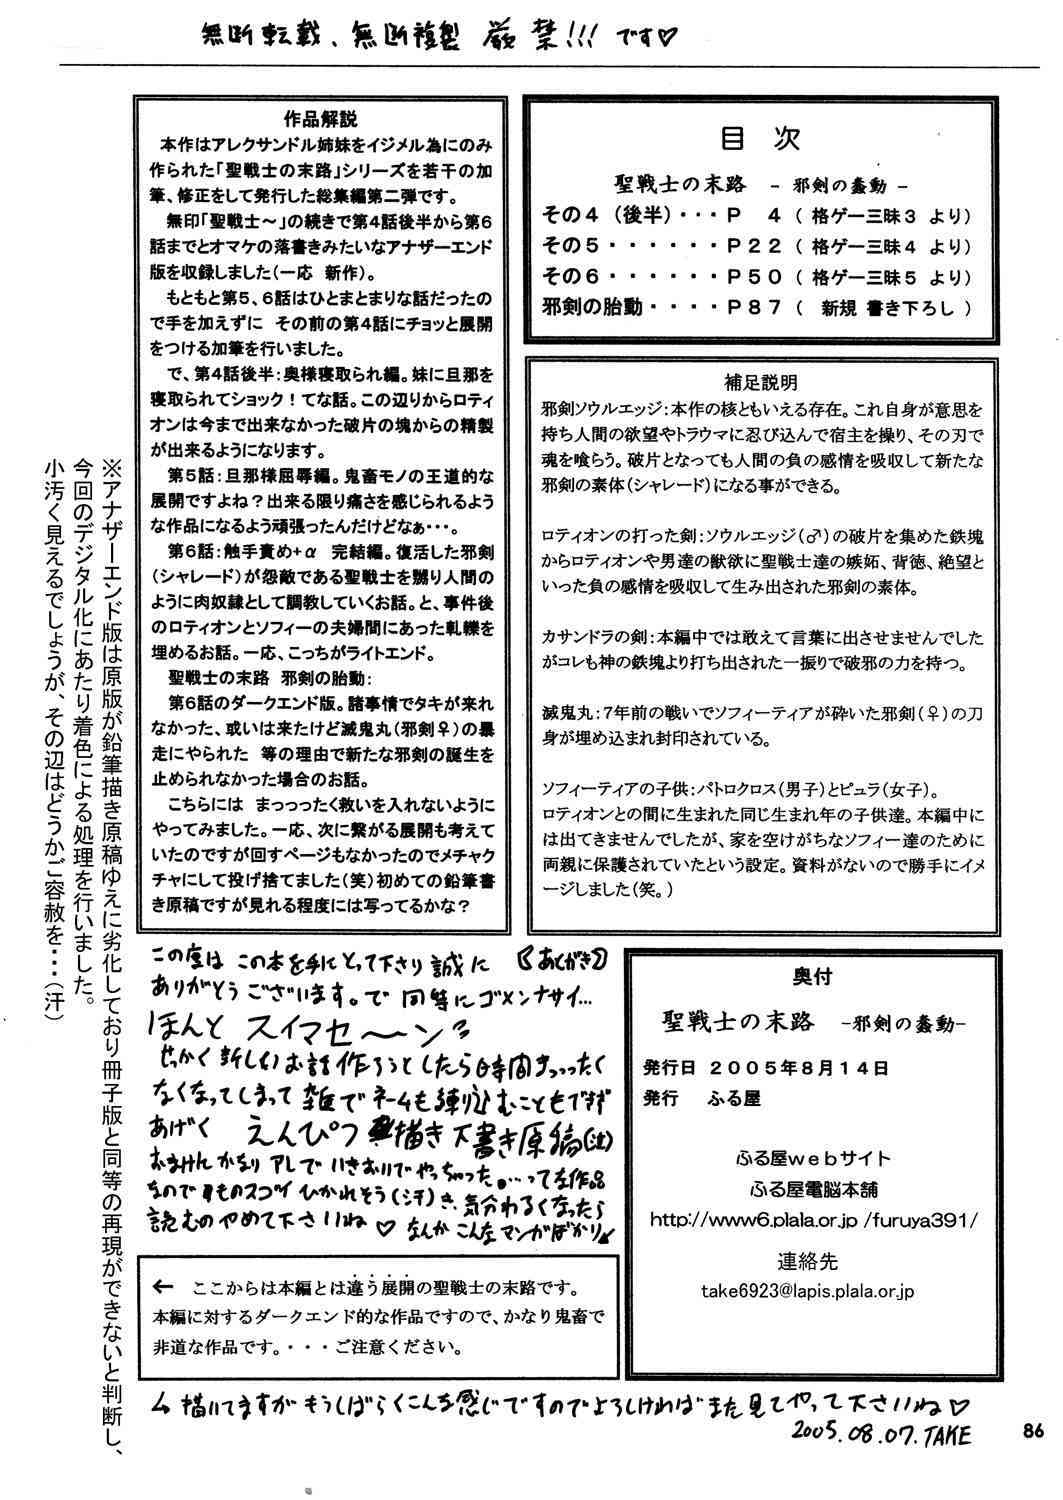 無断転載、無断複製 厳禁!!! です♡
目 次
聖戦士の末路 － 邪剣の蠢動 －
その４（後半）・・・Ｐ ４（ 格ゲー三昧３ より）
その５・・・・・・Ｐ２２（ 格ゲー三昧４ より）
その６・・・・・・Ｐ５０（ 格ゲー三昧５ より）
邪剣の胎動・・・・Ｐ８７（ 新規 書き下ろし ）
作品解説
本作はアレクサンドル姉妹をイジメル為にのみ
作られた「聖戦士の末路」シリーズを若干の加
筆、修正をして発行した総集編第二弾です。
無印「聖戦士～」の続きで第4話後半から第6
話までとオマケの落書きみたいなアナザーエンド
版を収録しました（一応 新作）。
もともと第5、6話はひとまとまりな話だったの
で手を加えずに その前の第4話にチョッと展開
をつける加筆を行いました。
で、第4話後半：奥様寝取られ編。妹に旦那を
寝取られてショック！てな話。この辺りからロティ
オンは今まで出来なかった破片の塊からの精製
が出来るようになります。
第5話：旦那様屈辱編。鬼畜モノの王道的な
展開ですよね？出来る限り痛さを感じられるよう
な作品になるよう頑張ったんだけどなぁ・・・。
第6話：触手責め+α 完結編。復活した邪剣
（シャレード）が怨敵である聖戦士を嬲り人間の
ように肉奴隷として調教していくお話。と、事件後
のロティオンとソフィーの夫婦間にあった軋轢を
埋めるお話。一応、こっちがライトエンド。
聖戦士の末路 邪剣の胎動：
第6話のダークエンド版。諸事情でタキが来れ
なかった、或いは来たけど滅鬼丸（邪剣♀）の暴
走にやられた 等の理由で新たな邪剣の誕生を
止められなかった場合のお話。
こちらには まっっったく救いを入れないように
やってみました。一応、次に繋がる展開も考えて
いたのですが回すページもなかったのでメチャク
チャにして投げ捨てました（笑）初めての鉛筆書
き原稿ですが見れる程度には写ってるかな？
補足説明
邪剣ソウルエッジ：本作の核ともいえる存在。これ自身が意思を
持ち人間の欲望やトラウマに忍び込んで宿主を操り、その刃で
魂を喰らう。破片となっても人間の負の感情を吸収して新たな
邪剣の素体（シャレード）になる事ができる。
ロティオンの打った剣：ソウルエッジ（♂）の破片を集めた鉄塊
からロティオンや男達の獣欲に聖戦士達の嫉妬、背徳、絶望と
いった負の感情を吸収して生み出された邪剣の素体。
カサンドラの剣：本編中では敢えて言葉に出させませんでした
がコレも神の鉄塊より打ち出された一振りで破邪の力を持つ。
滅鬼丸：7年前の戦いでソフィーティアが砕いた邪剣（♀）の刀
身が埋め込まれ封印されている。
ソフィーティアの子供：パトロクロス（男子）とピュラ（女子）。
ロティオンとの間に生まれた同じ生まれ年の子供達。本編中に
は出てきませんでしたが、家を空けがちなソフィー達のために
両親に保護されていたという設定。資料がないので勝手にイメ
ージしました（笑。）
※アナザーエンド版は原版が鉛筆描き原稿ゆえに劣化しており冊子版と同等の再現ができないと判断し、
今回のデジタル化にあたり着色による処理を行いました。
小汚く見えるでしょうが、その辺はどうかご容赦を・・・（汗）
《あとがき》
この度は この本を手にとって下さり誠に
ありがとうございます。で 同時にゴメンナサイ…
ほんと スイマセ〜ン
せっかく新しいお話作ろうとしたら時間まっったく
なくなってしまって 雑でネームも練り込むこともできず
あげく えんぴつ描き下書き原稿(泣)
おまけにかなりアレでいきおいでやっちゃった・・・って作品
なのでものスゴイひかれそう(汗) き、気分わるくなったら
読むのやめて下さいね ♡ なんか こんなマンガばかり
奥付
聖戦士の末路 －邪剣の蠢動－
発行日 ２００５年８月１４日
発行 ふる屋
ふる屋ｗｅｂサイト
ふる屋電脳本舗
http://www6.plala.or.jp /furuya391/
連絡先
take6923@lapis.plala.or.jp
← ここからは本編とは違う展開の聖戦士の末路です。
本編に対するダークエンド的な作品ですので、かなり鬼畜で
非道な作品です。・・・ご注意ください。
描いてますが もうしばらくこんな感じですのでよろしければまた見てやって下さいね♡
2005.08.07.TAKE
86